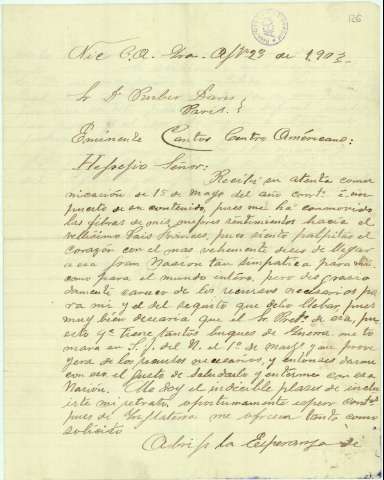 126
Nic C.A. Gra. Agto 23 de 1903.
Sr Dn Ruben Dario
Paris.
Eminente Cantor Centro Américano:
Señor:
Recibí su atenta comu
nicación de 15 de Mayo del año cont. é im
puesto de su contenido, pues me ha conmovido
las fibras de mis mejores sentimientos hacia el
bellísimo Pais Frances, pues siento palpitar el
corazón con el mas vehemente deceo de llegar
a esa Gran Nacion tan simpatica para mi
como para el mundo entero, pero des gracia
damente caresco de los recursos necesarios pa
ra mi y el del seguito que debo llebar pues
muy bien decearia que el Sr Predte de esa, pu
esto qe tiene tantos buques de Guerra me to
mara en S. J. del N. el 1o de Marzo y que prove
yera de los recursos necesarios, y entonces darme
con eso el gusto de saludarlo y entrarme con esa
Nación. Me doy el indicible placer de inclu
irle mi retrato, oportunamente espero contn
pues de Inglaterra me ofrecen tanto como
solicito
Abrigo la Esperanza de